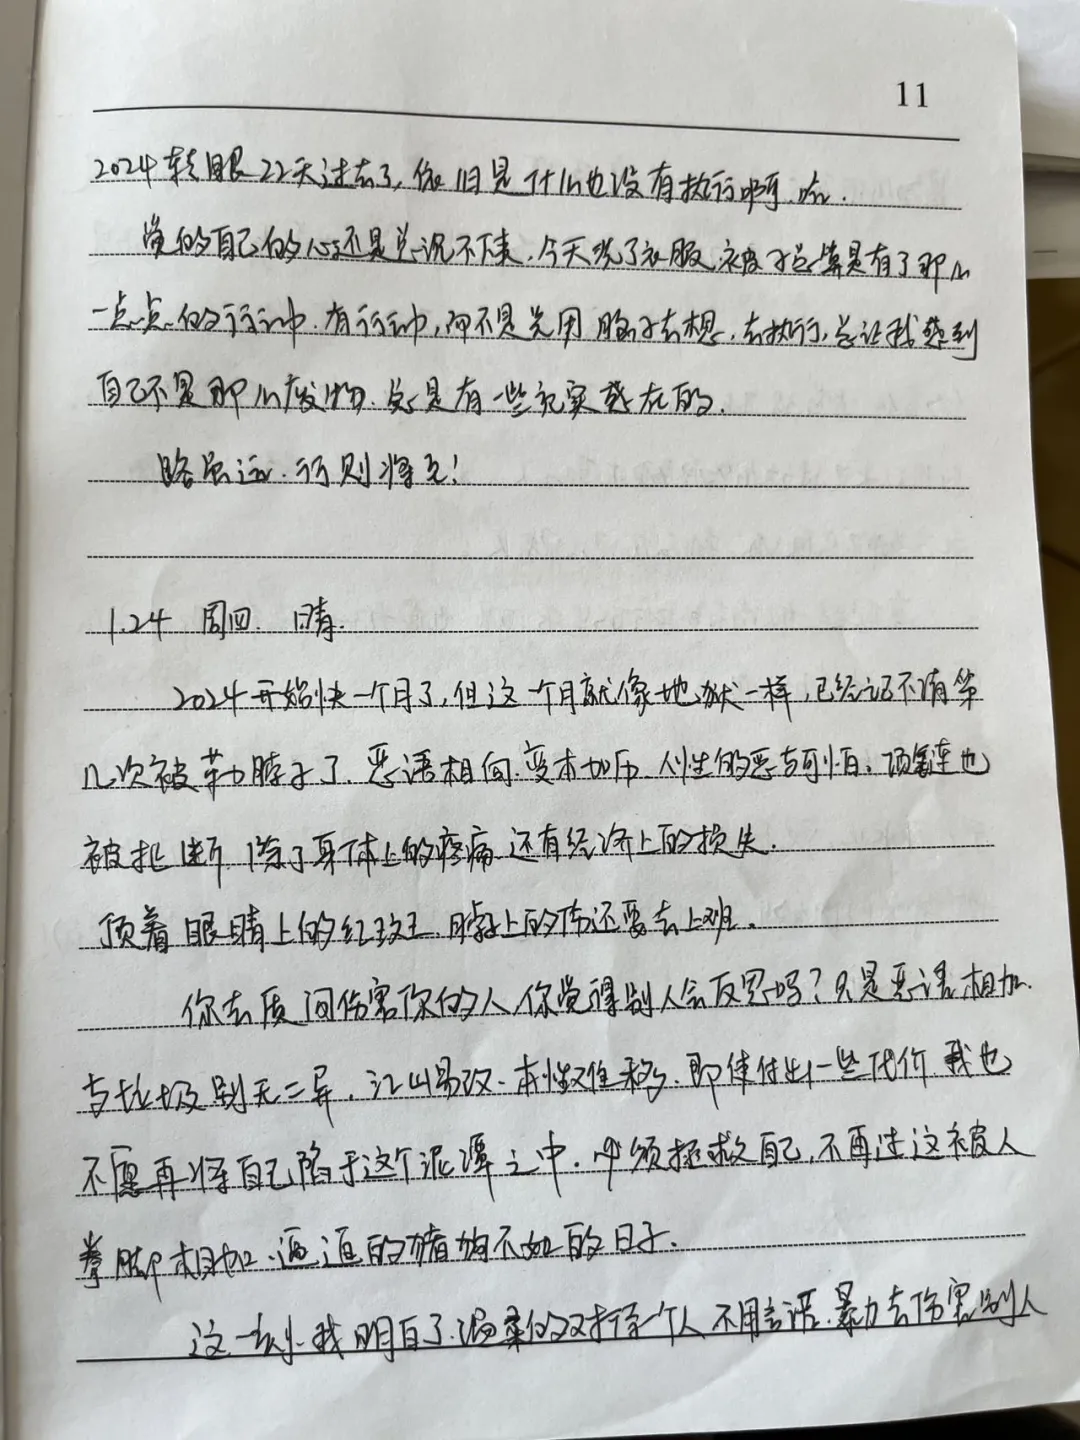 11
2024转眼22天过去了,依旧是什么也没有执行啊.
觉的自己的心还是总沉不下来.今天洗了衣服.被子总算是有了那么
一点点的行动.有行动,而不是光用脑子去想,去执行,总让我感到
自己不是那么废物.总是有一些充实感在的.
路虽远.行则将至!
1.24 周四. 晴.
2024开始快一个月了,但这一个月就像地狱一样,已经记不清第
几次被勒脖子了.恶语相向.变本加厉.人性的恶与可怕.项链也
被扯断.除了身体上的疼痛.还有经济上的损失.
顶着眼睛上的红斑.脖子上的伤还要去上班.
你去质问伤害你的人,你觉得别人会反思吗?只是恶语相加.
与垃圾别无二异.江山易改.本性难移.即使付出一些代价.我也
不愿再将自己陷于这个泥潭之中.必须拯救自己.不再过这被人
拳脚相加.逼迫的猪狗不如的日子.
这一刻.我明白了.温柔的对待一个人.不用言语.暴力去伤害别人